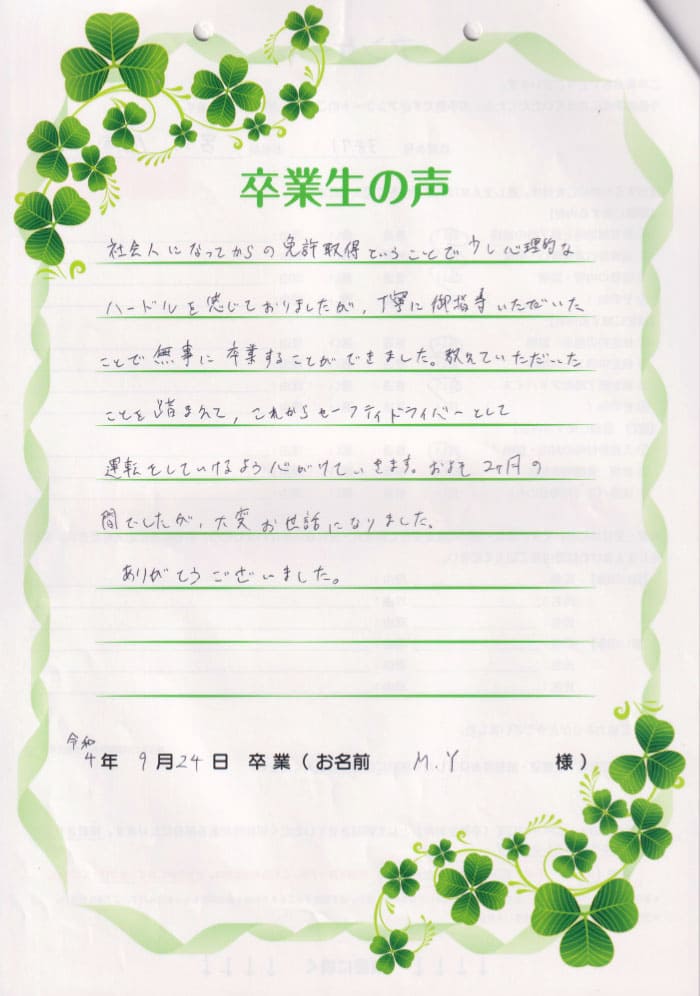 卒業生の声
社会人になってからの免許取得ということで少し心理的な
ハードルを感じておりましたが、丁寧に御指導いただいた
ことで無事に卒業することができました。教えていただいた
ことを踏まえて、これからセーフティドライバーとして
運転をしていけるよう心がけていきます。およそ2ヶ月の
間でしたが、大変お世話になりました。
ありがとうございました。
令和
4年 9月24日 卒業(お名前 M.Y 様)